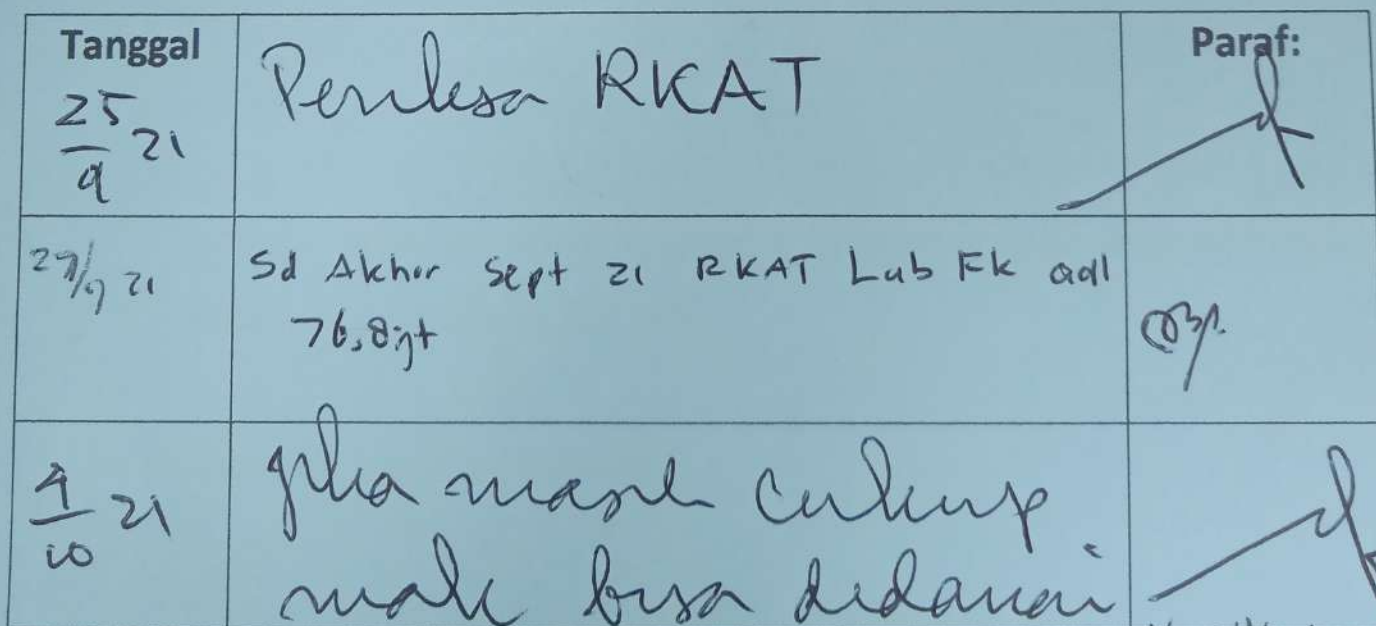 Tanggal
25/9 21
Periksa RKAT
Paraf:
27/9 21
Sd Akhir Sept 21 RKAT Lab Fk adl
76,8jt
4/10 21
jika masih cukup
mak bisa didanai